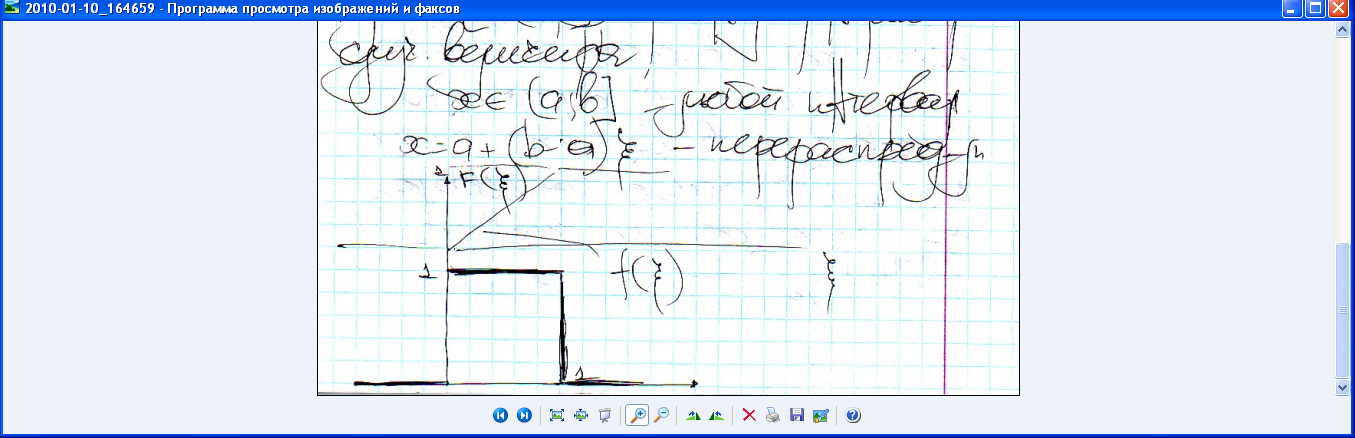 2010-01-10_164659 - Программа просмотра изображений и факсов
случ. величина,
x ∈ (a; b] - любой интервал
x = a + (b - a) ξ - перераспред-
1 F(ξ)
1 f(ξ) ξ
1